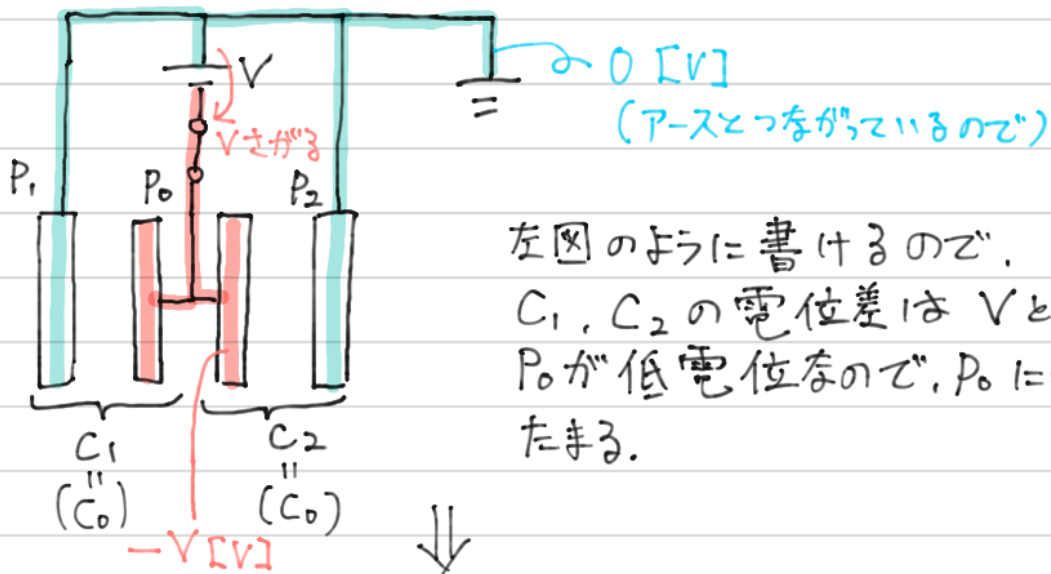 V
0 [V]
(アースとつながっているので)
Vさがる
P₁
P₀
P₂
左図のように書けるので、
C₁, C₂ の電位差は Vと
P₀が低電位なので、P₀に
たまる.
C₁
"
(C₀)
C₂
"
(C₀)
-V[V]
⇓